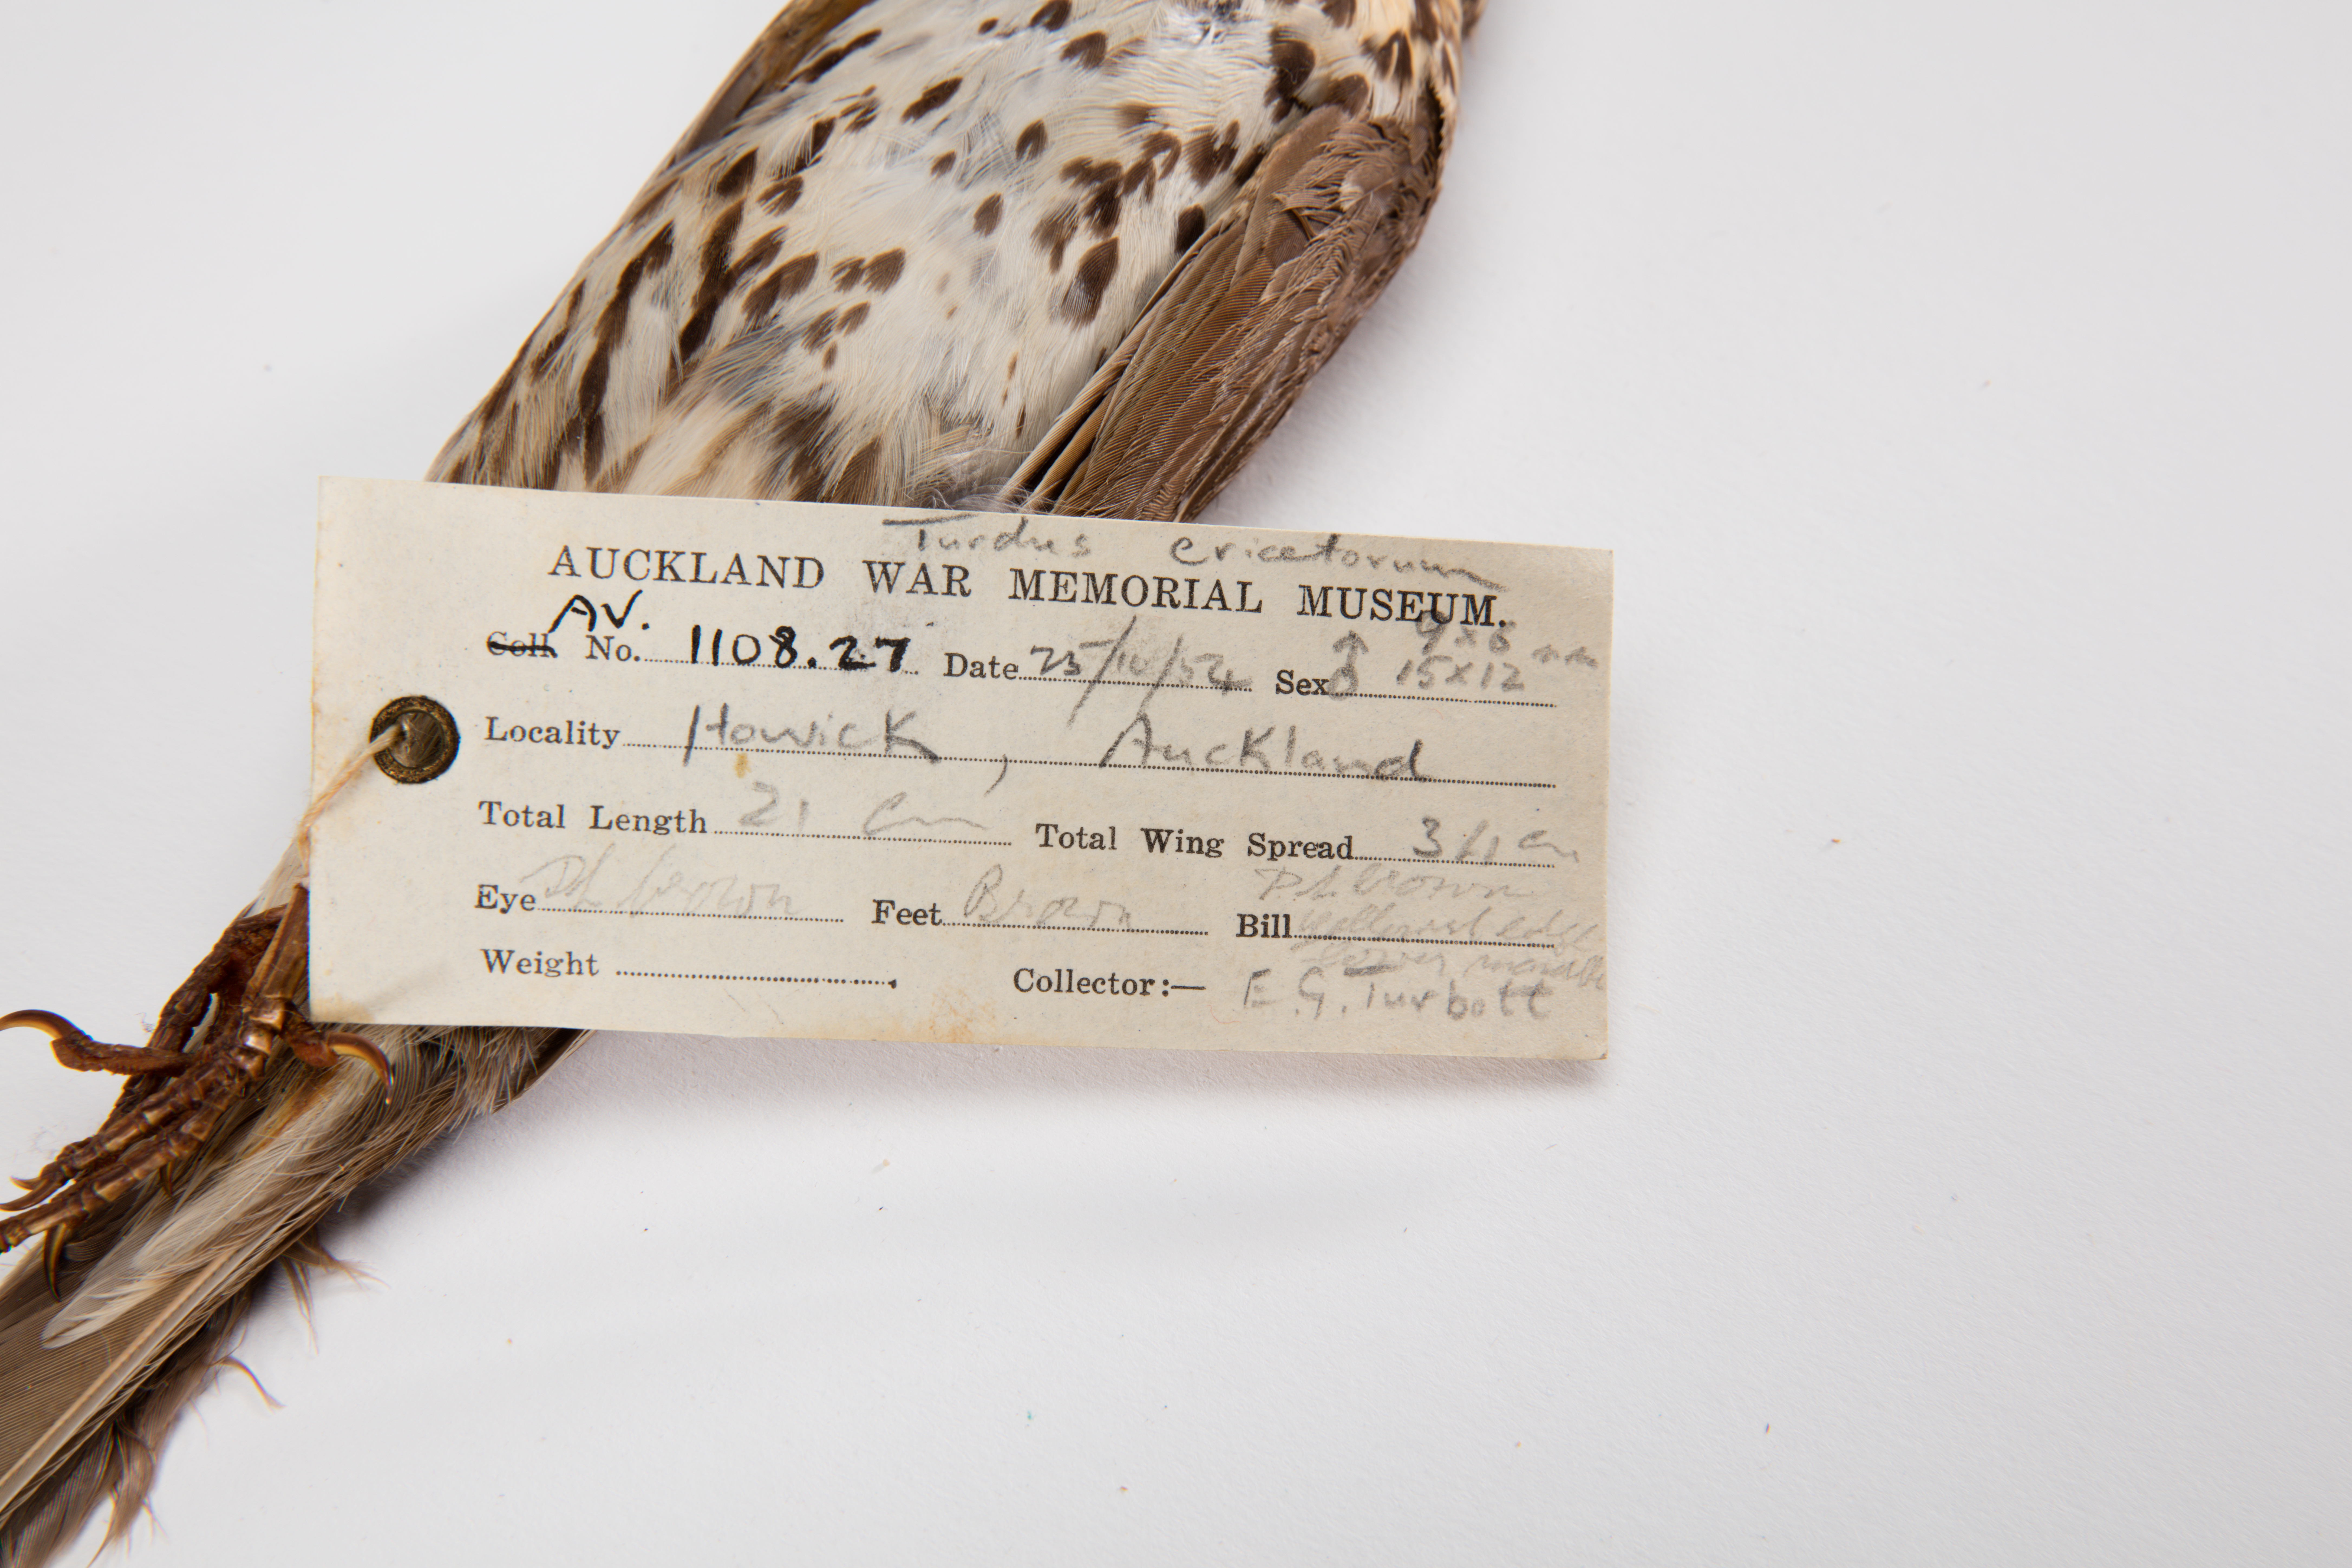 Turdus ericetorum
AUCKLAND WAR MEMORIAL MUSEUM.
AV.
9x6 mm
Coll. No. 1108.27 Date 25/10/54 Sex ♂ 15x12
Locality Howick, Auckland
Total Length 21 cm Total Wing Spread cm
Dk brown
Eye Dk brown Feet Brown Bill yellowish edge
lower mandible
Weight Collector:— E.G. Turbott